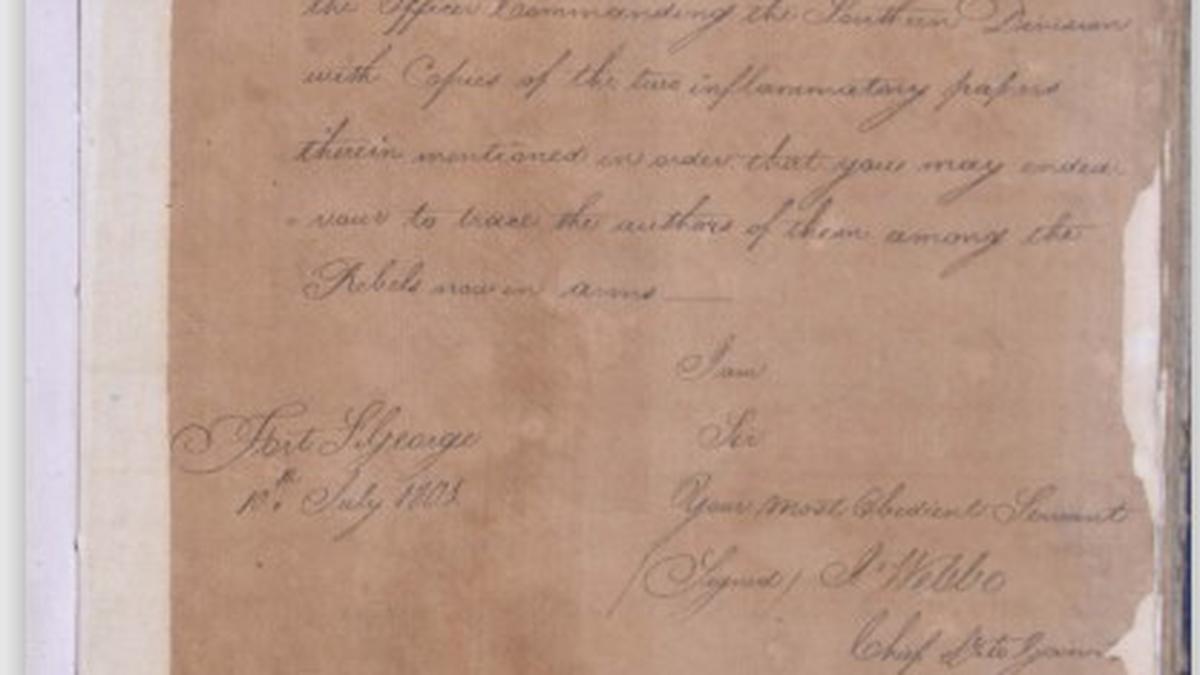 the Officer Commanding the Southern Division
with Copies of the two inflammatory papers
therein mentioned in order that you may endea
- vour to trace the authors of them among the
Rebels now in arms ——
I am
Sir
Fort St. George
10th July 1801
Your most Obedient Servant
(Signed) J. Webbe
Chief Sec to Govt